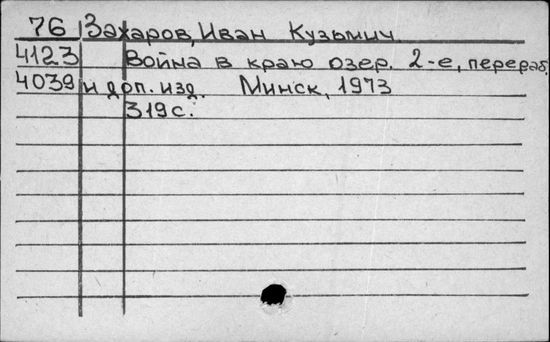 76 Захаров, Иван Кузьмич
4123 Война в краю озер. 2-е, перераб.
4039 и доп. изд. Минск, 1973
319 с.